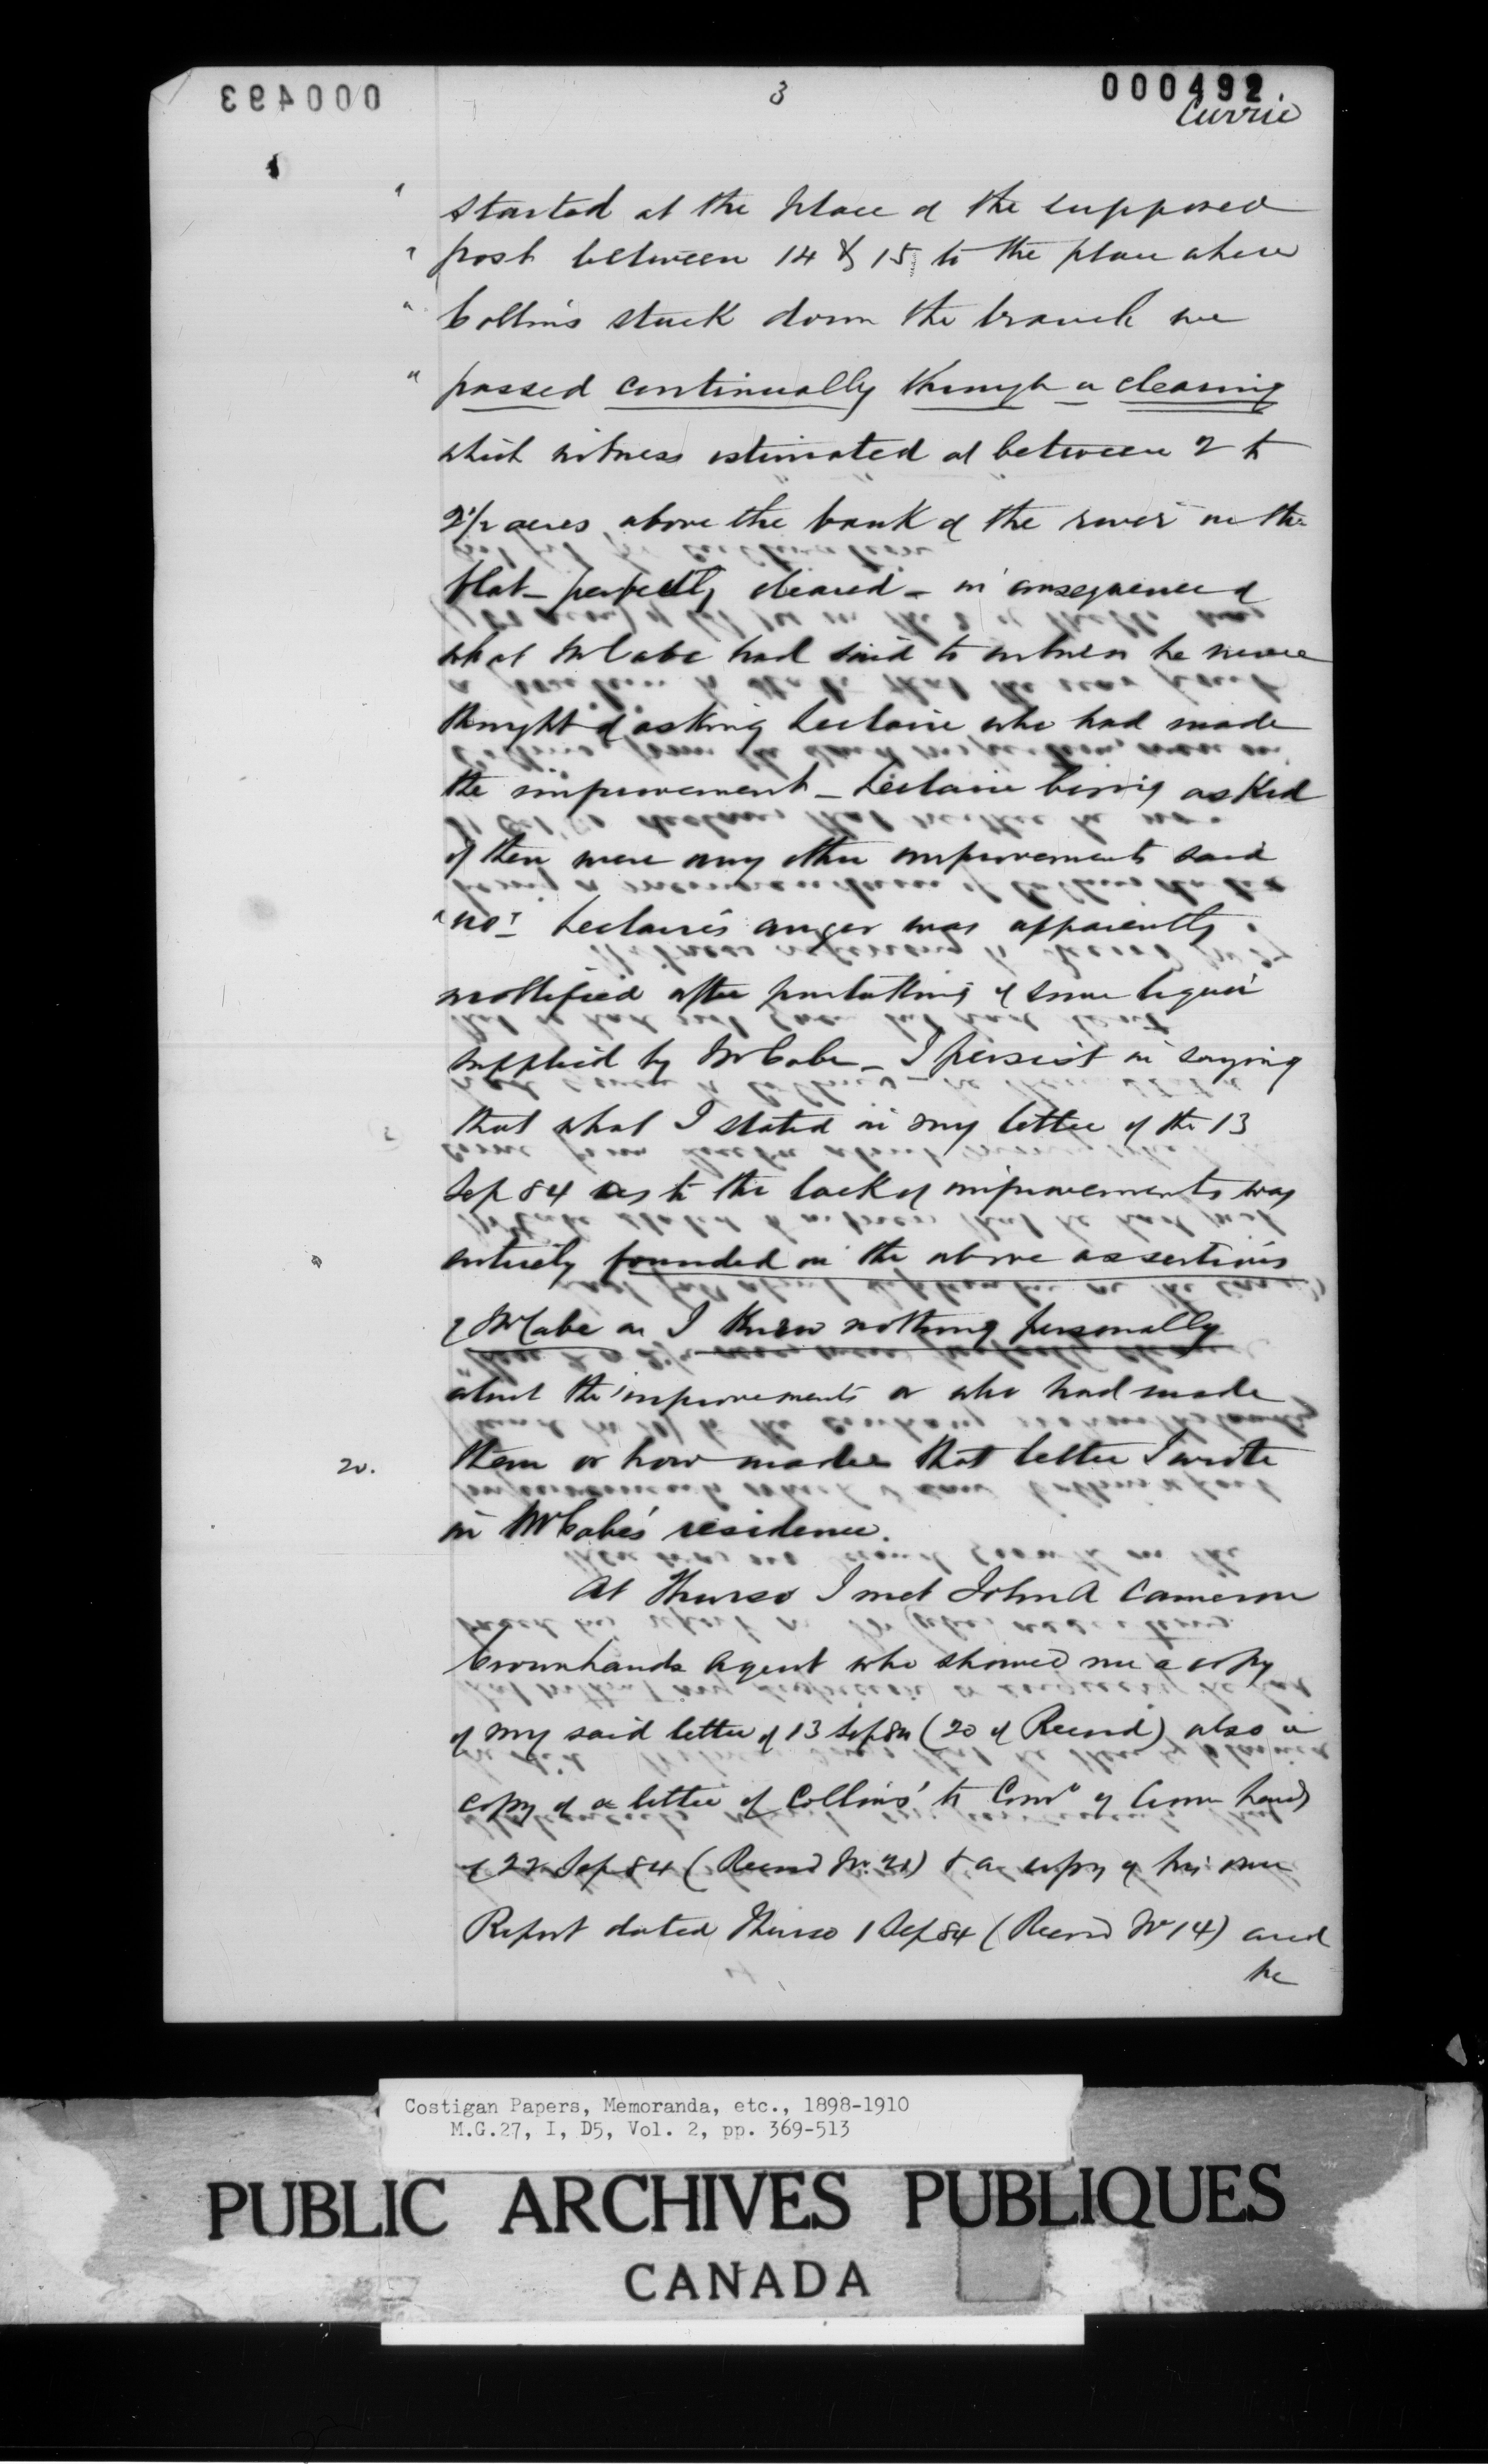 000493
3
000492
Currie
" started at the place of the supposed
" post between 14 & 15 to the place where
" Collins stuck down the branch we
" passed continually through a clearing
which witness estimated at between 2 to
2 1/2 acres above the bank of the river on the
flat - perfectly cleared - in consequence of
what McCabe had said to witness he never
thought of asking Leclaire who had made
the improvement - Leclaire being asked
if there were any other improvements said
"no" Leclaire's anger was apparently
mollified after partaking of some liquor
supplied by McCabe - I persist in saying
that what I stated in my letter of the 13
Sep 84 as to the lack of improvements was
entirely founded on the above assertions
of McCabe as I knew nothing personally
about the improvements or who had made
20.
them or how made that letter I wrote
in McCabe's residence.
At Thurso I met John A Cameron
Crown Lands Agent who showed me a copy
of my said letter of 13 Sep 84 (20 of Record) also a
copy of a letter of Collins' to Comr of Crown Lands
of 22 Sep 84 (Record No. 21) & a copy of his own
Report dated Thurso 1 Sep 84 (Record No 14) and
he
Costigan Papers, Memoranda, etc., 1898-1910
M.G.27, I, D5, Vol. 2, pp. 369-513
PUBLIC ARCHIVES PUBLIQUES
CANADA